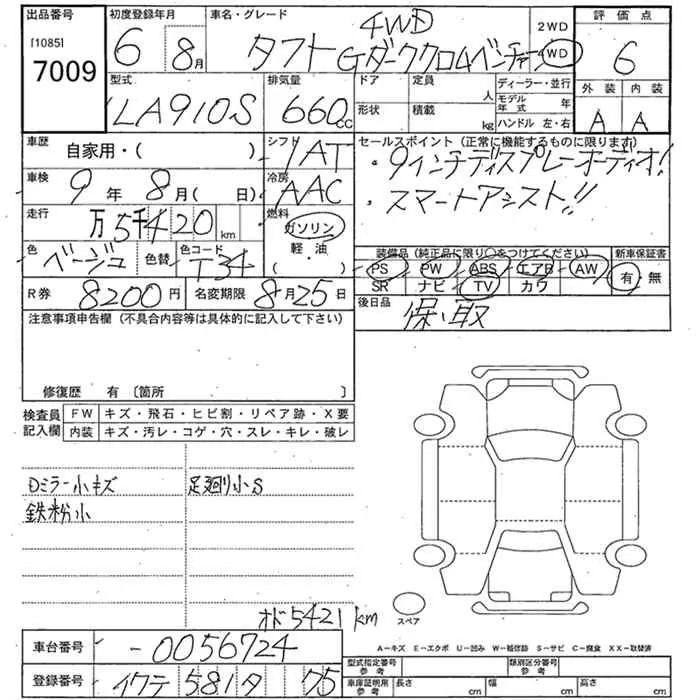 出品番号 初度登録年月 車名・グレード 2WD 評価点
[1085] 7009 6 8月 タフト 4WD Gダーククロムベンチャー 4WD 6
型式 排気量 ドア 定員 人 ディーラー・並行 外装 内装
LA910S 660cc 形状 積載 kg モデル年式 年 ハンドル 左・右 A A
車歴 自家用・( ) シフト IAT セールスポイント (正常に機能するものに限ります)
・9インチディスプレーオーディオ!
車検 9年 8月( 日) 冷房 AAC ・スマートアシスト!!
走行 万5千420km 燃料 ガソリン 軽・油 ( )
色 ベージュ 色替 色コード T34
装備品(純正品に限り○をつけてください) 新車保証書
PS PW ABS エアB AW 有・無
SR ナビ TV カワ
R券 8200円 名変期限 8月25日 後日品 保、取
注意事項申告欄 (不具合内容等は具体的に記入して下さい)
修復歴 有 [箇所 ]
検査員記入欄 FW キズ・飛石・ヒビ割・リペア跡・X要
内装 キズ・汚レ・コゲ・穴・スレ・キレ・破レ
Dミラー小キズ 足廻り小S
鉄粉小
オド5421km
スペア
A-キズ E-エクボ U-凹み W-補修跡 S-サビ C-腐食 XX-取替済
車台番号 -0056724
型式指定番号 参考 類別区分番号 参考
登録番号 イワテ 581 タ 75
車庫証明用 参考 長さ cm 幅 cm 高さ cm